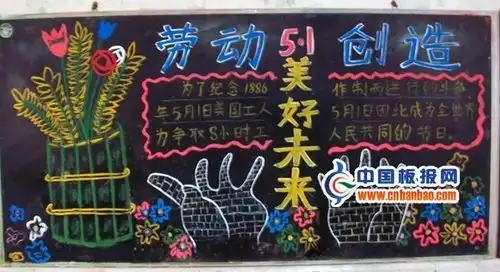 劳动 5·1 创造
美好未来
为了纪念1886
年5月1日美国工人
为争取8小时工
作制而进行的斗争
5月1日因此成为全世界
人民共同的节日。
中国板报网
www.cnbanbao.com